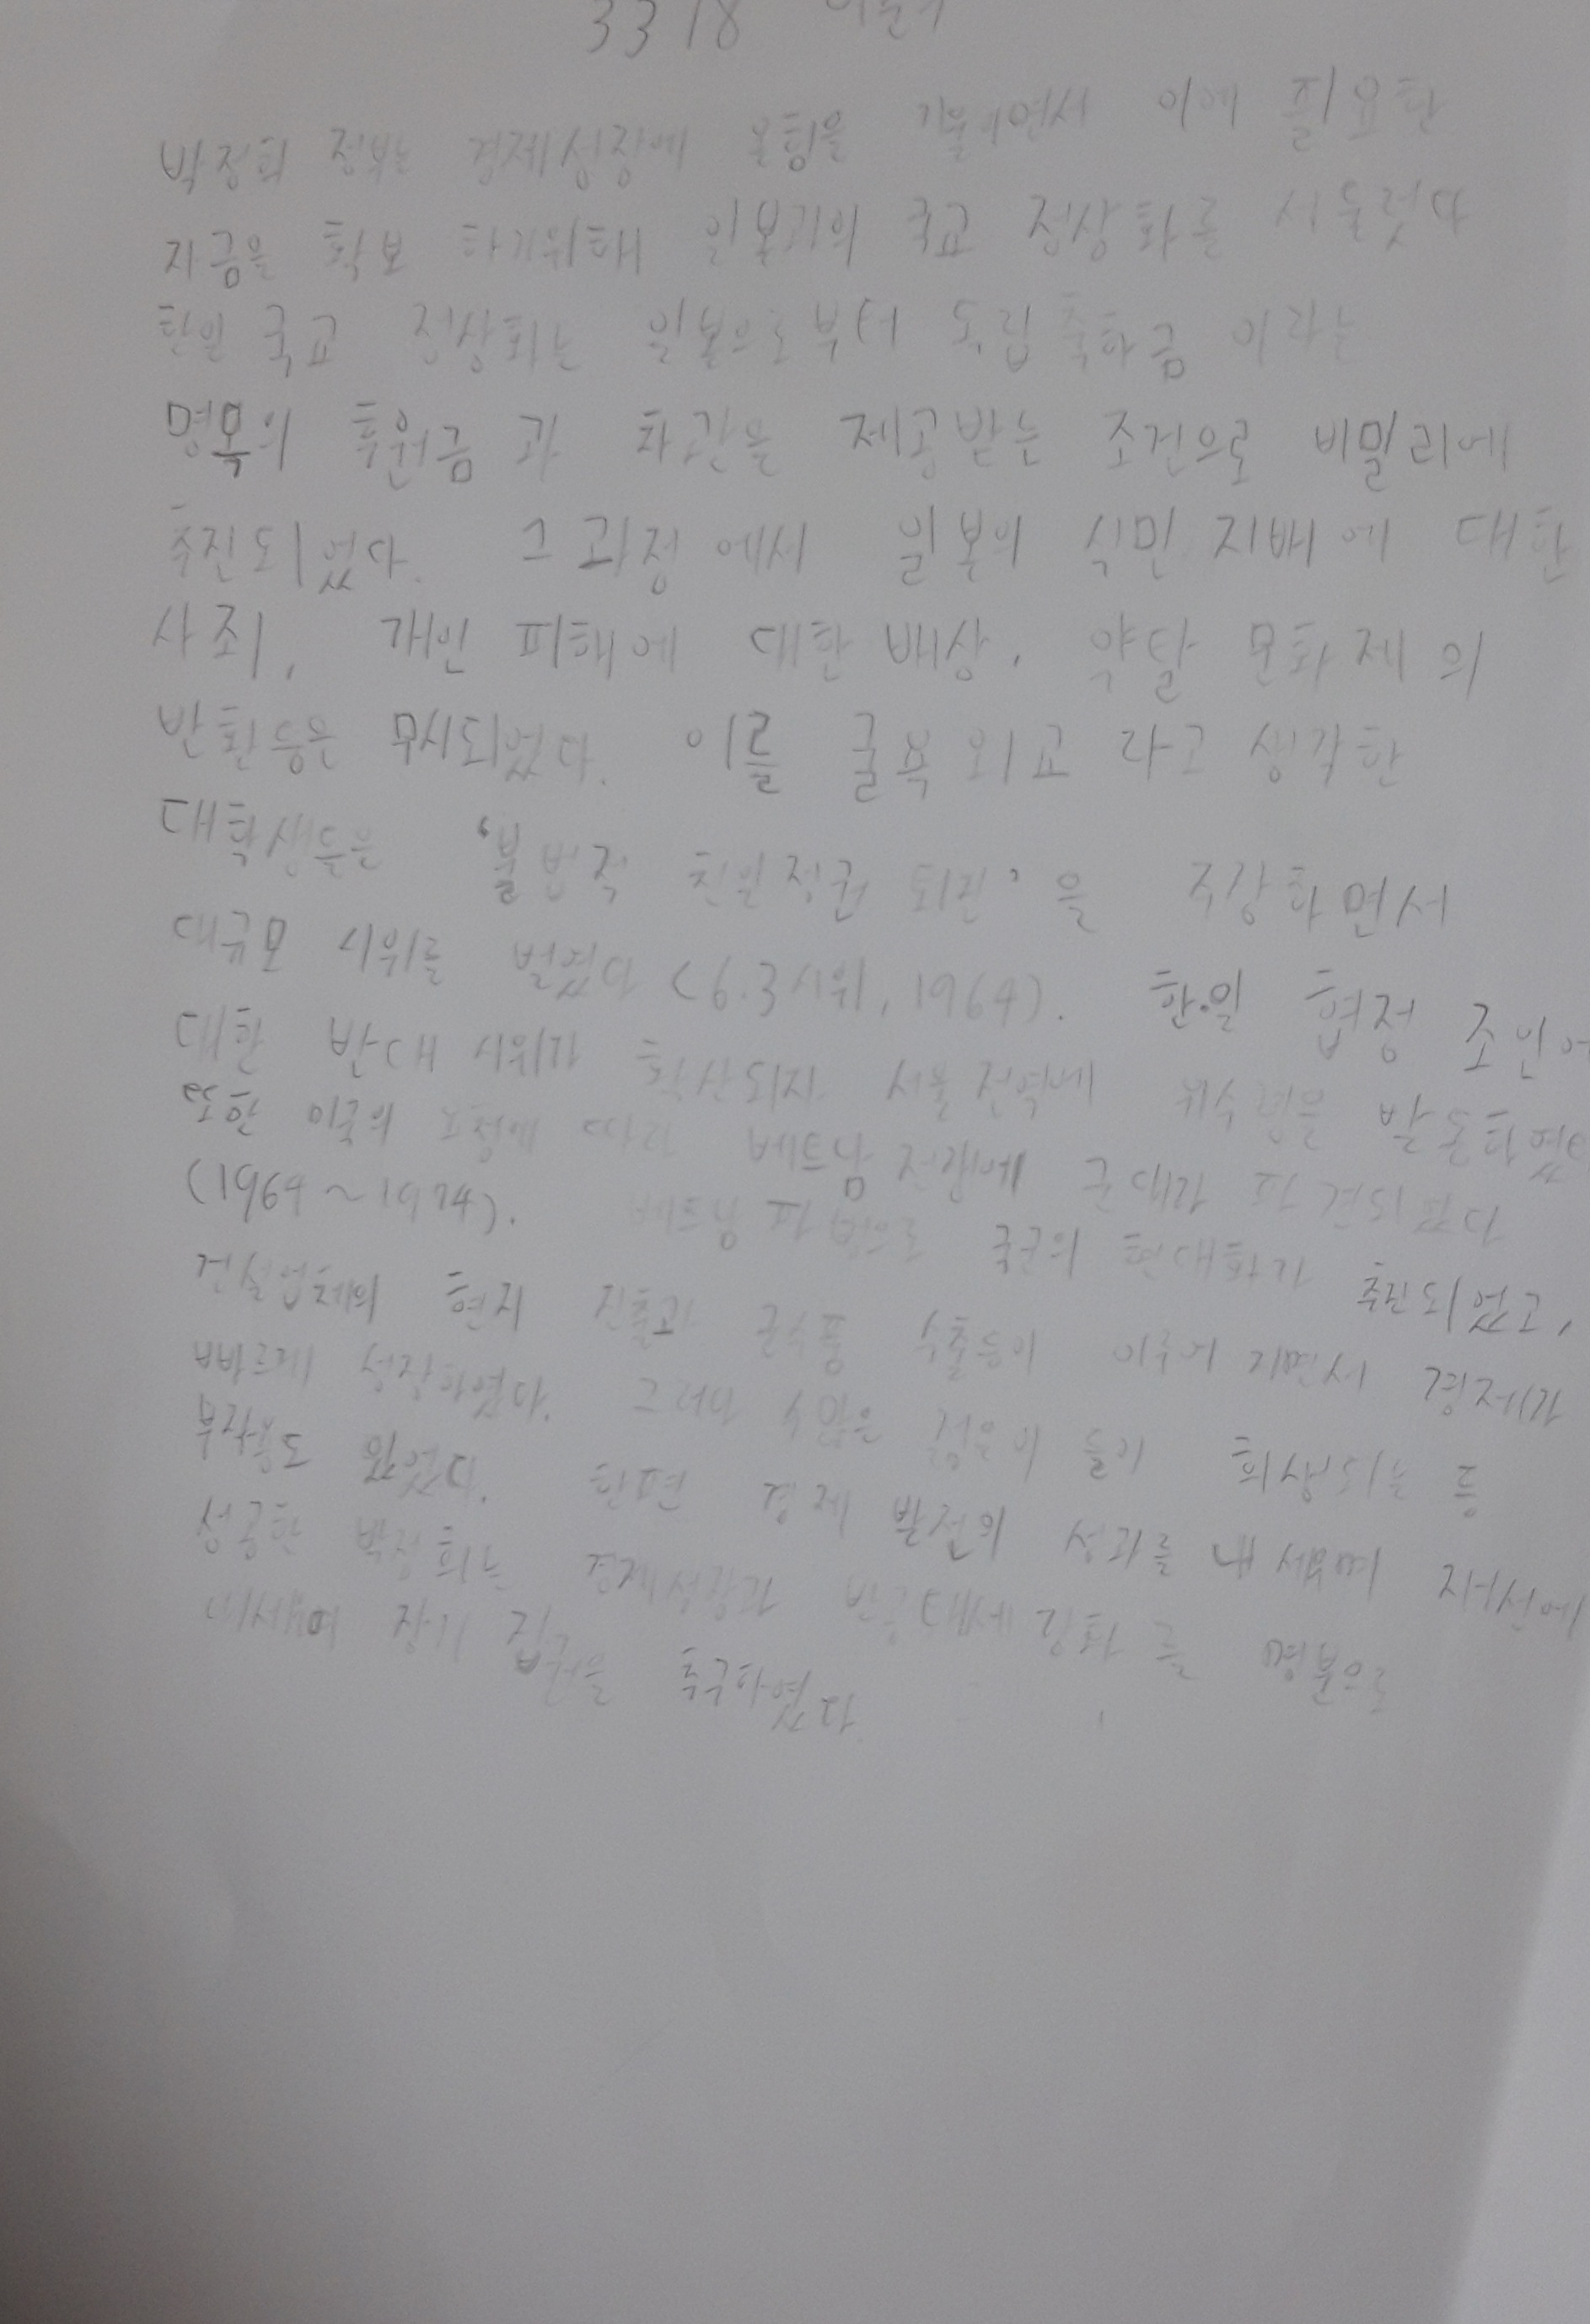 3318
박정희 정부는 경제성장에 온힘을 기울이면서 이에 필요한
자금을 확보 하기위해 일본과의 국교 정상화를 서둘렀다
한일 국교 정상화는 일본으로부터 독립축하금 이라는
명목의 후원금과 차관을 제공받는 조건으로 비밀리에
추진되었다. 그 과정에서 일본의 식민 지배에 대한
사죄, 개인 피해에 대한 배상, 약탈 문화제의
반환등은 무시되었다. 이를 굴욕외교 라고 생각한
대학생들은 '불법적 친일정권 퇴진'을 주장하면서
대규모 시위를 벌였다 (6.3시위, 1964). 한·일 협정 조인에
대한 반대 시위가 확산되자 서울 전역에 위수령을 발동하였
또한 미국의 요청에 따라 베트남 전쟁에 군대가 파견되었다
(1964~1974). 베트남 파병으로 국군의 현대화가 추진되었고,
건설업체의 현지 진출과 군수품 수출등이 이루어지면서 경제가
빠르게 성장하였다. 그러나 수많은 젊은이 들이 희생되는 등
부작용도 있었다. 한편 경제 발전의 성과를 내세우며 재선에
성공한 박정희는 경제성장과 반공태세 강화를 명분으로
장기 집권을 추구하였다